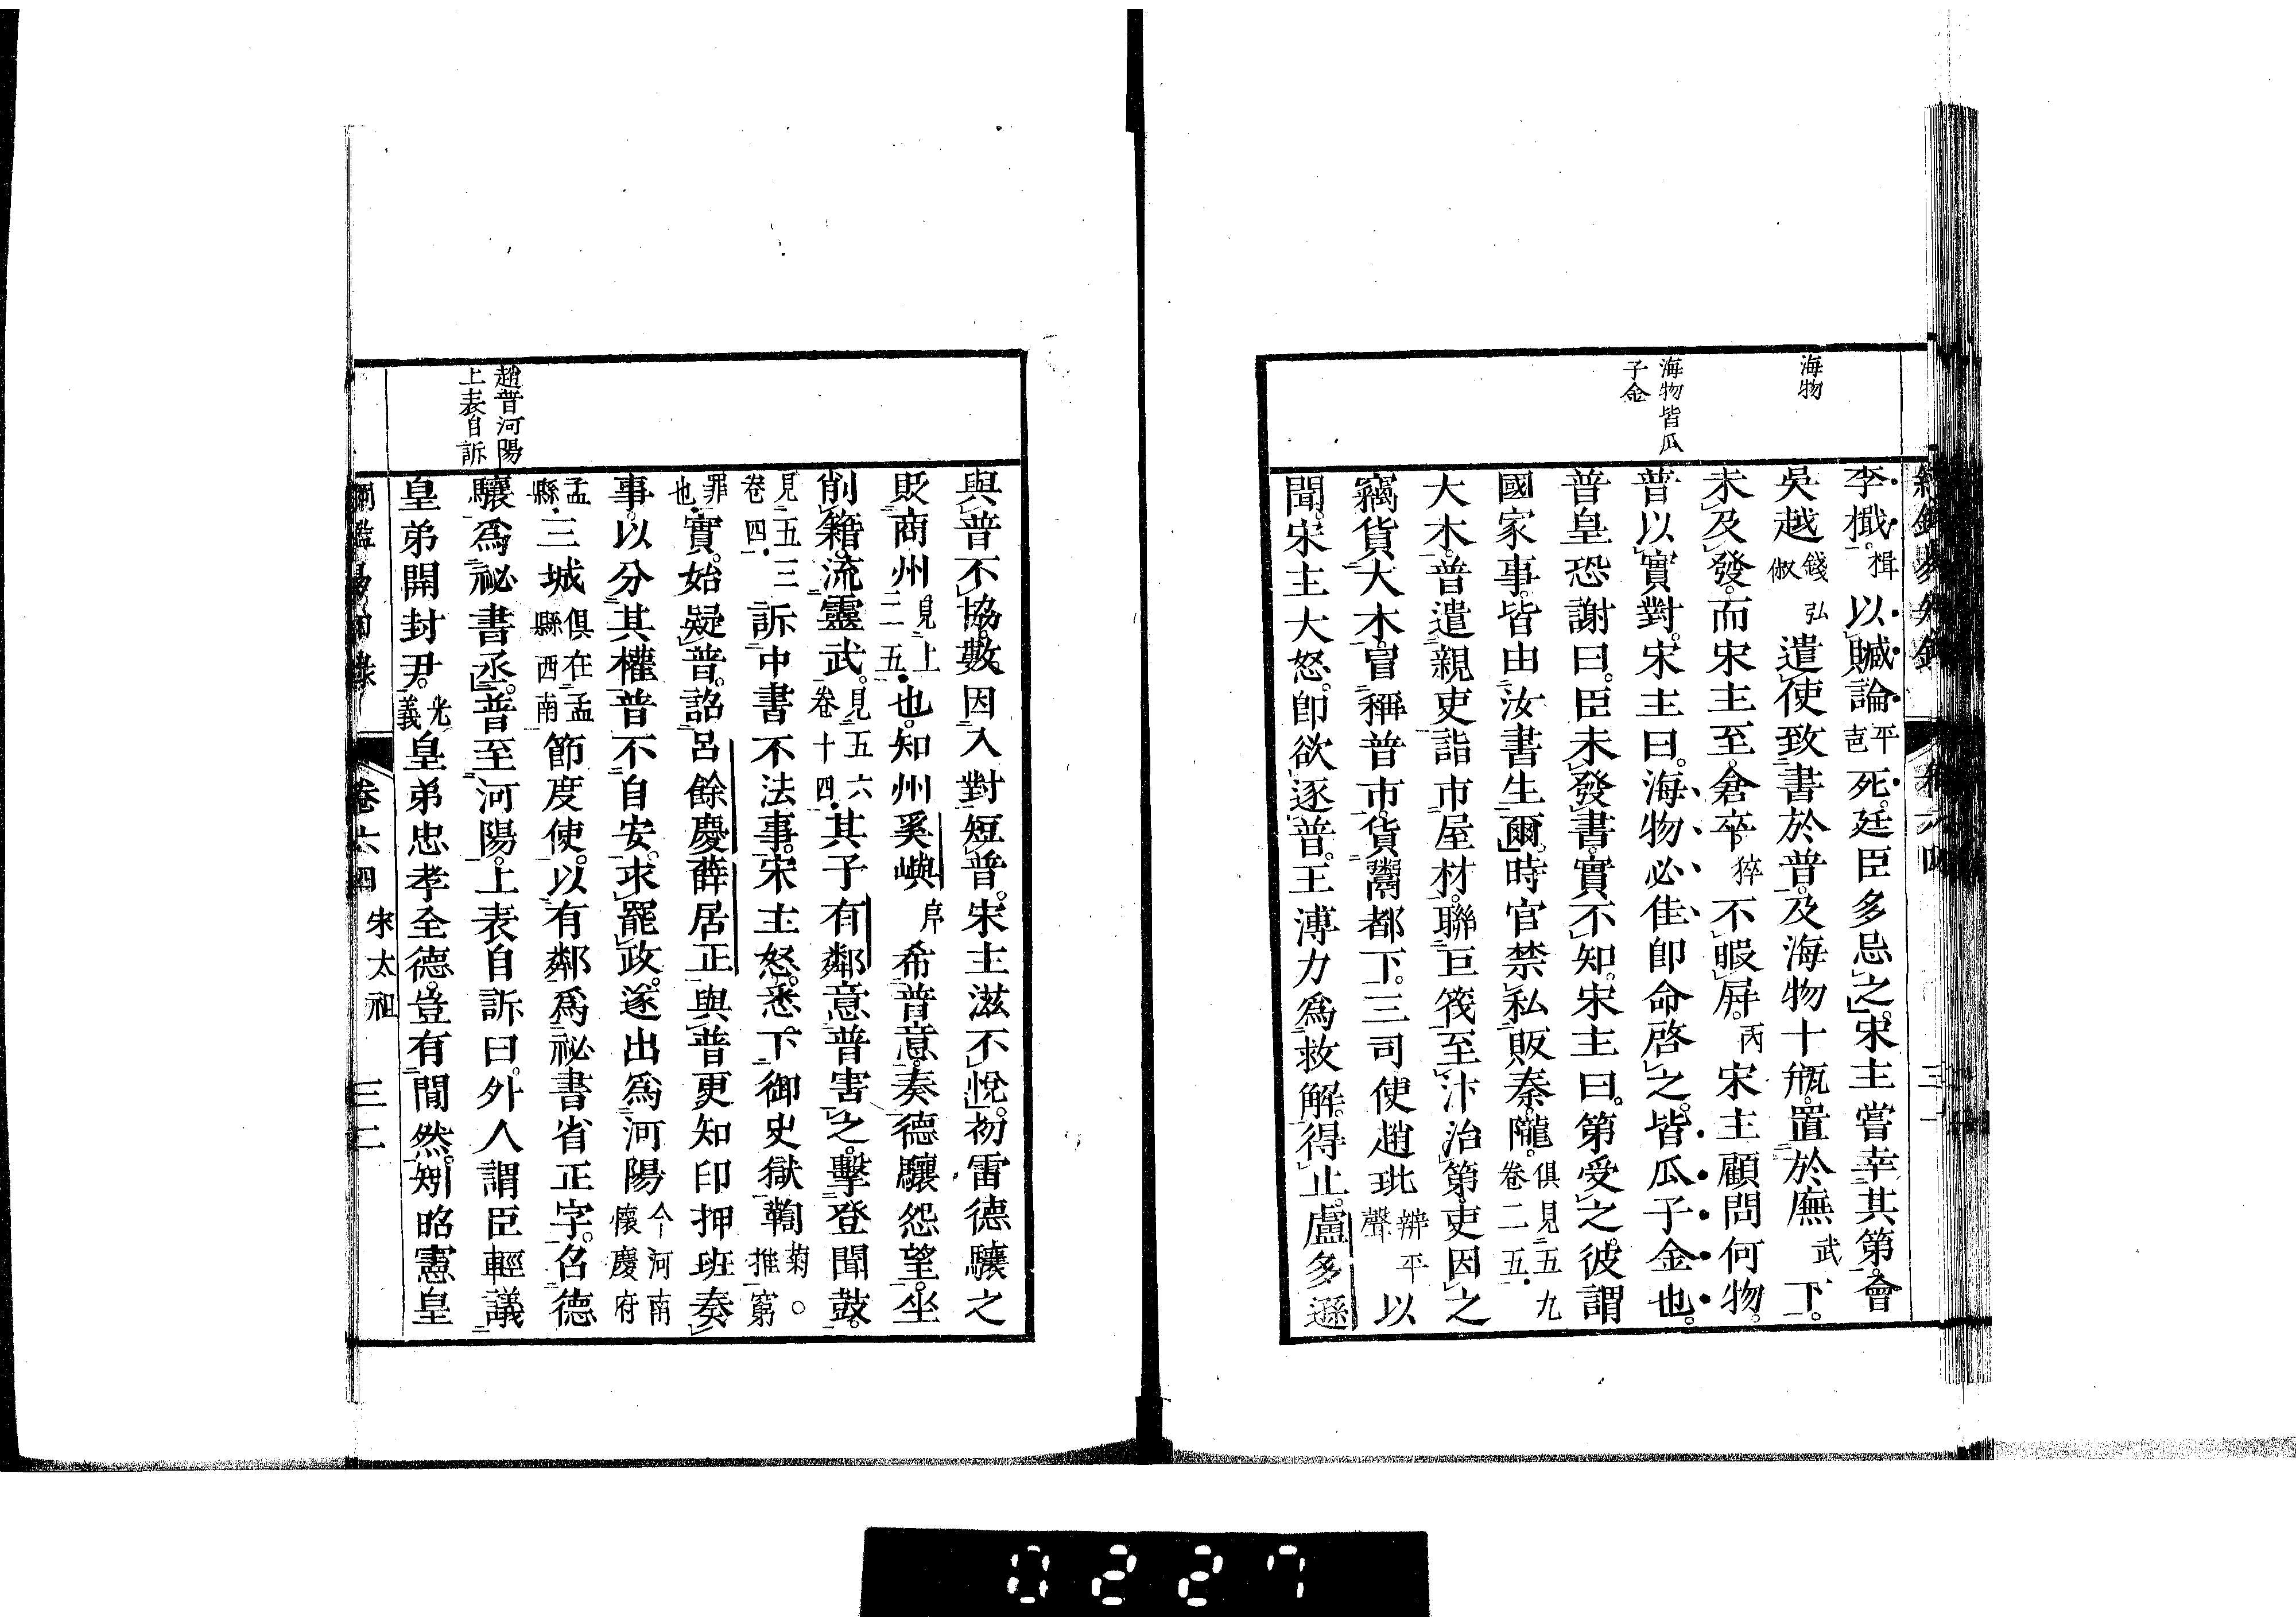 海物
海物皆瓜
子金
李檝楫以贓論平㐌死。廷臣多忌之。宋主嘗幸其第。會
吳越錢弘俶遣使致書於普。及海物十瓶。置於廡武下。
未及發。而宋主至。倉卒。猝不暇屏。丙宋主顧問何物。
普以實對。宋主曰。海物必佳。卽命啓之。皆瓜子金也。
普皇恐謝曰。臣未發書。實不知。宋主曰。第受之。彼謂
國家事。皆由汝書生爾。時官禁私販秦隴。俱見五九卷二五
大木。普遣親吏詣市屋材。聯巨筏至汴治第。吏因之
竊貨大木。冒稱普市。貨鬻都下。三司使趙玭辨平聲以
聞。宋主大怒。卽欲逐普。王溥力爲救解。得止。盧多遜
與普不協。數因入對短普。宋主滋不悅。初雷德驤之
貶商州見上二五也。知州奚嶼序希普意。奏德驤怨望。坐
削籍。流靈武。見五六卷十四其子有鄰意普害之。擊登聞鼓。
見五三卷四訴中書不法事。宋主怒。悉下御史獄鞫菊。推窮
罪也實。始疑普。詔呂餘慶薛居正與普更知印押班奏
事。以分其權。普不自安。求罷政。遂出爲河陽今河南懷慶府
孟縣三城俱在孟縣西南節度使。以有鄰爲祕書省正字。召德
驤爲祕書丞。普至河陽。上表自訴曰。外人謂臣輕議
皇弟開封尹。光義皇弟忠孝全德。豈有閒然。矧昭憲皇
趙普河陽
上表自訴
卷六四 宋太祖 三二
0227